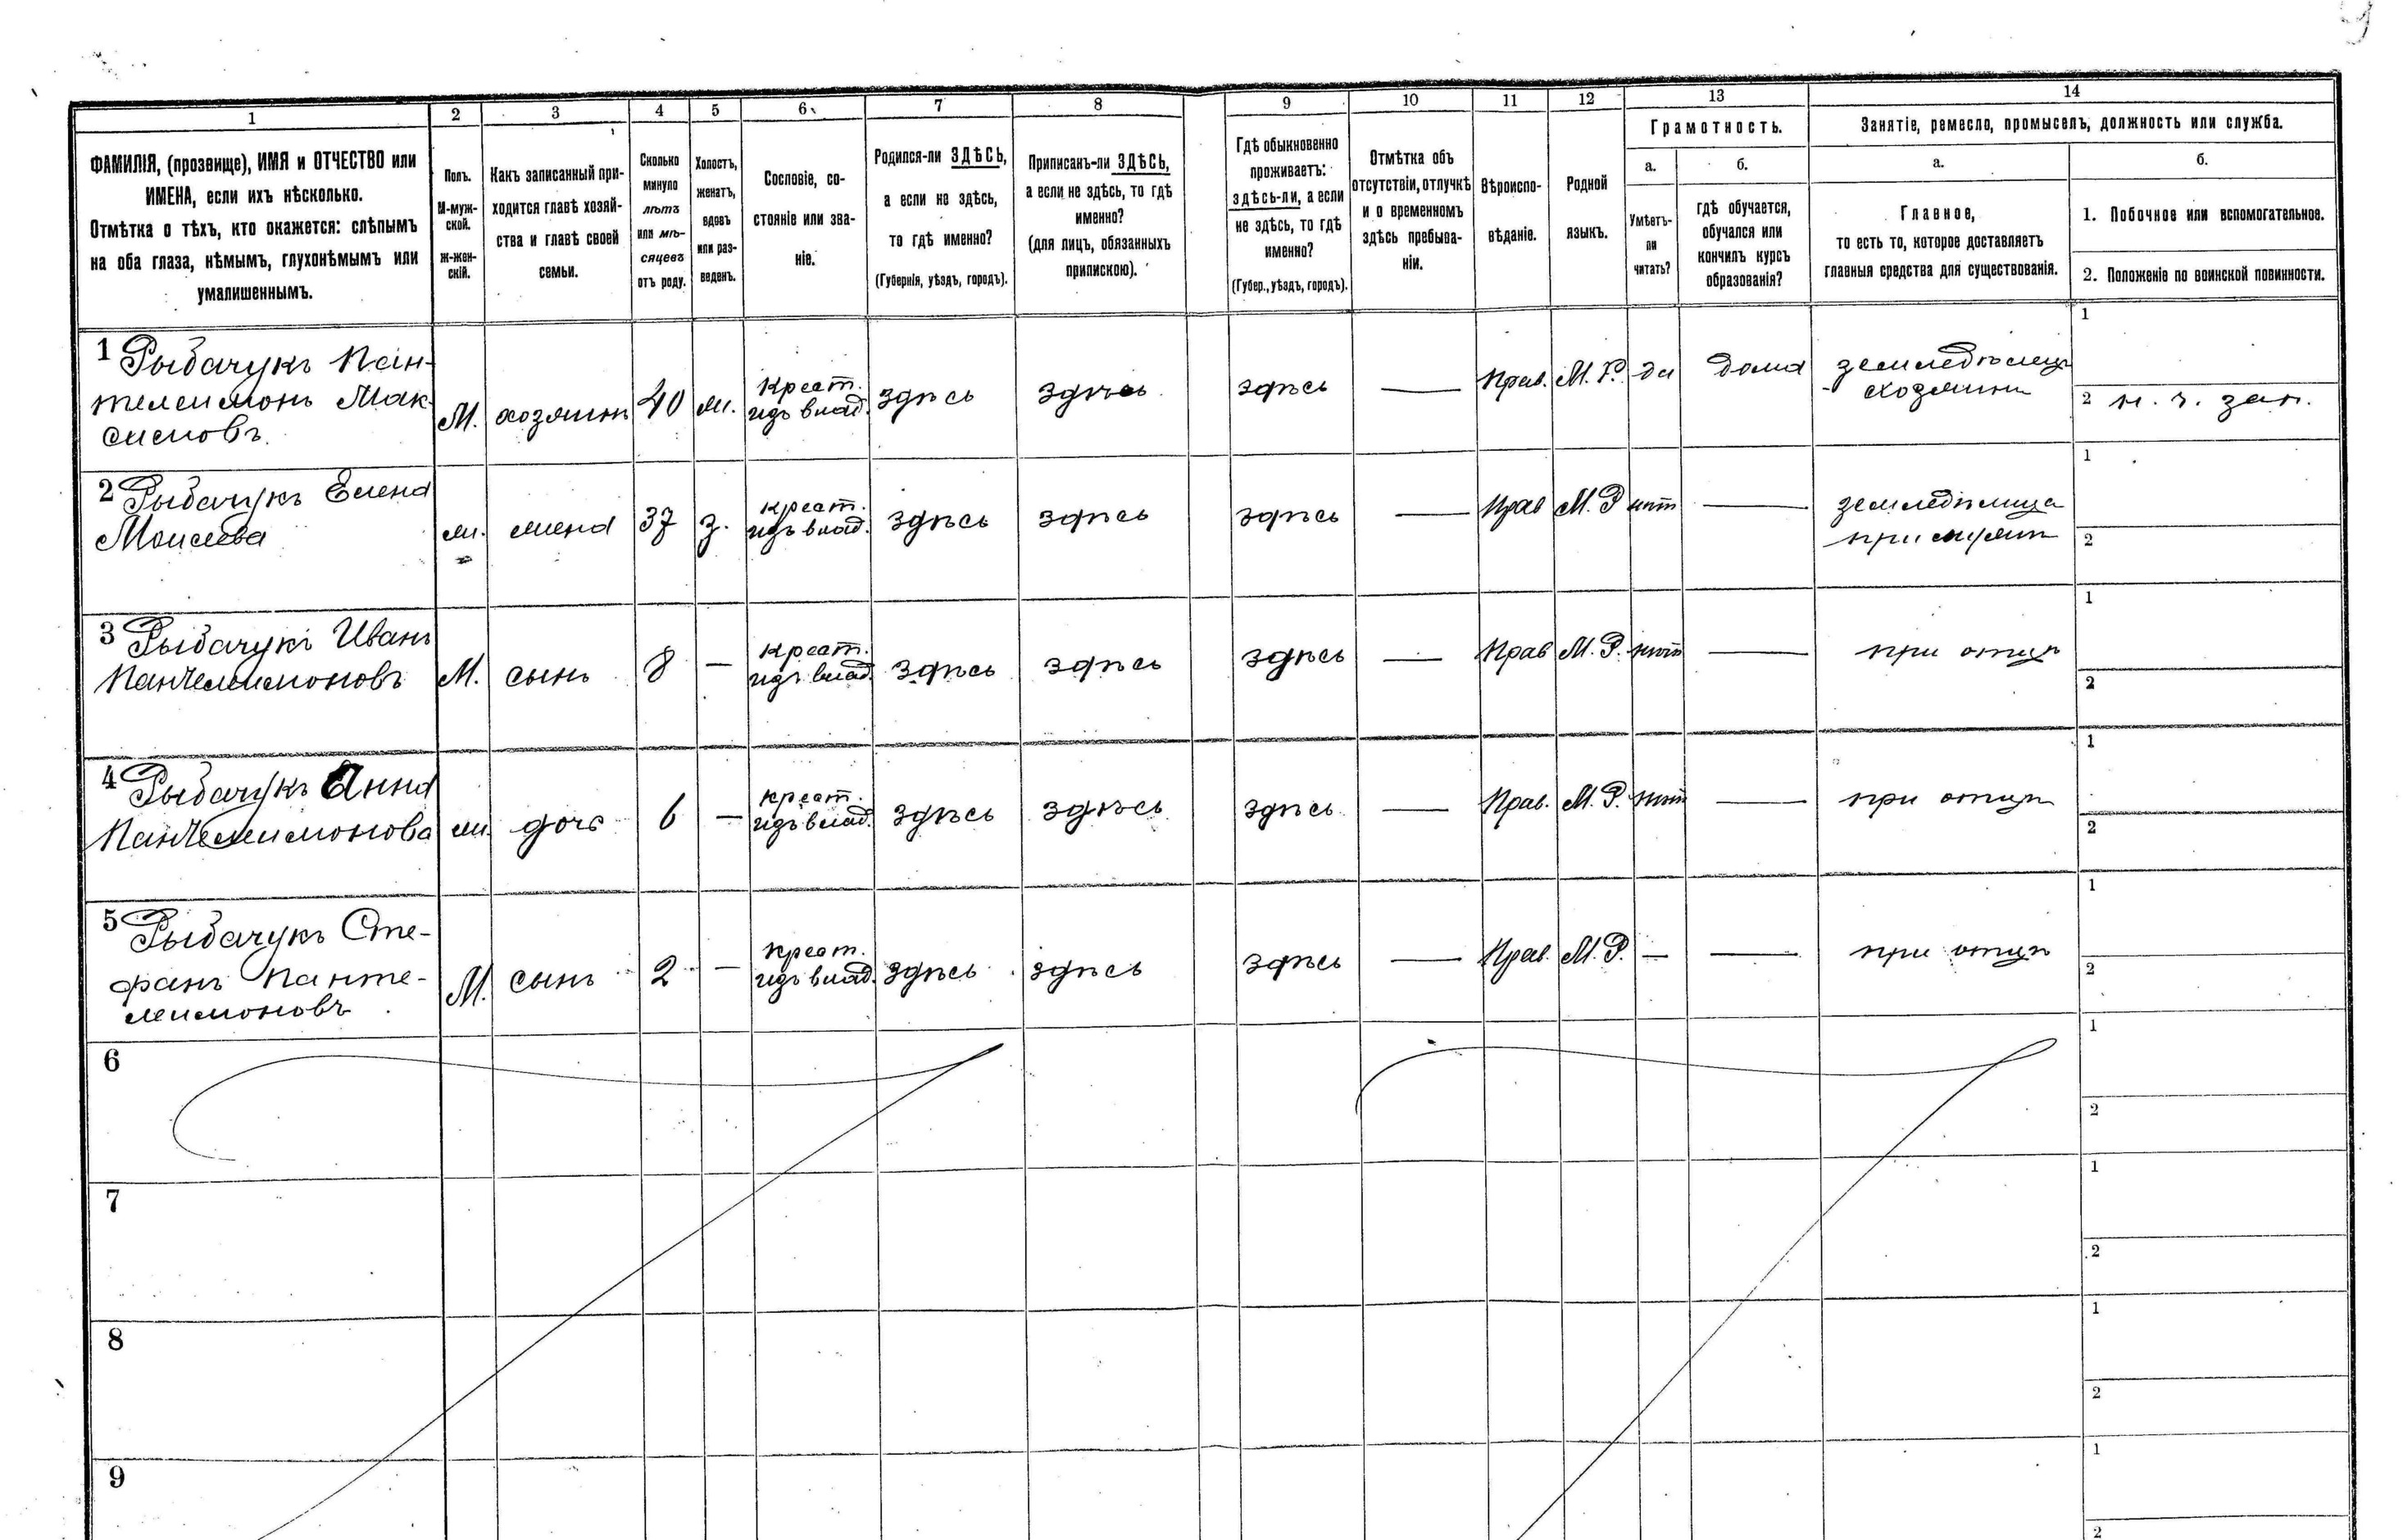 1 2 3 4 5 6 7 8 9 10 11 12 13 14
ФАМИЛІЯ, (прозвище), ИМЯ и ОТЧЕСТВО или
ИМЕНА, если ихъ нѣсколько.
Отмѣтка о тѣхъ, кто окажется: слѣпымъ
на оба глаза, нѣмымъ, глухонѣмымъ или
умалишеннымъ.
Полъ.
М-муж-
ской.
ж-жен-
скій.
Какъ записанный при-
ходится главѣ хозяй-
ства и главѣ своей
семьи.
Сколько
минуло
лѣтъ
или мѣ-
сяцевъ
отъ роду.
Холостъ,
женатъ,
вдовъ
или раз-
веденъ.
Сословіе, со-
стояніе или зва-
ніе.
Родился-ли ЗДѢСЬ,
а если не здѣсь,
то гдѣ именно?
(Губернія, уѣздъ, городъ).
Приписанъ-ли ЗДѢСЬ,
а если не здѣсь, то гдѣ
именно?
(для лицъ, обязанныхъ
припискою).
Гдѣ обыкновенно
проживаетъ:
здѣсь-ли, а если
не здѣсь, то гдѣ
именно?
(Губер., уѣздъ, городъ).
Отмѣтка объ
отсутствіи, отлучкѣ
и о временномъ
здѣсь пребыва-
ніи.
Вѣроиспо-
вѣданіе.
Родной
языкъ.
Грамотность.
а.
Умѣетъ-
ли
читать?
б.
гдѣ обучается,
обучался или
кончилъ курсъ
образованія?
Занятіе, ремесло, промыселъ, должность или служба.
а.
Главное,
то есть то, которое доставляетъ
главныя средства для существованія.
б.
1. Побочное или вспомогательное.
2. Положеніе по воинской повинности.
1 Рыбачукъ Пан-
телеимонъ Мак
симовъ
М. хозяинъ 40 ж. Крест.
изъ влад. здѣсь здѣсь здѣсь — Прав. М. Р. да дома земледѣлецъ
хозяинъ
1
2 н. ч. зап.
2 Рыбачукъ Елена
Моисеева
ж. жена 37 з. крест.
изъ влад. здѣсь здѣсь здѣсь — Прав М. Р нѣт — земледѣлица
при мужѣ
1
2
3 Рыбачукъ Иванъ
Пантелеимоновъ
М. сынъ 8 — крест.
изъ влад. здѣсь здѣсь здѣсь — Прав М. Р. нѣтъ — при отцѣ
1
2
4 Рыбачукъ Анна
Пантелеимонова
ж. дочь 6 — крест.
изъ влад. здѣсь здѣсь здѣсь — Прав. М. Р. нѣт — при отцѣ
1
2
5 Рыбачукъ Сте-
фанъ Панте-
леимоновъ
М. сынъ 2 — крест.
изъ влад. здѣсь здѣсь здѣсь — Прав. М. Р. — — при отцѣ
1
2
6
1
2
7
1
2
8
1
2
9
1
2